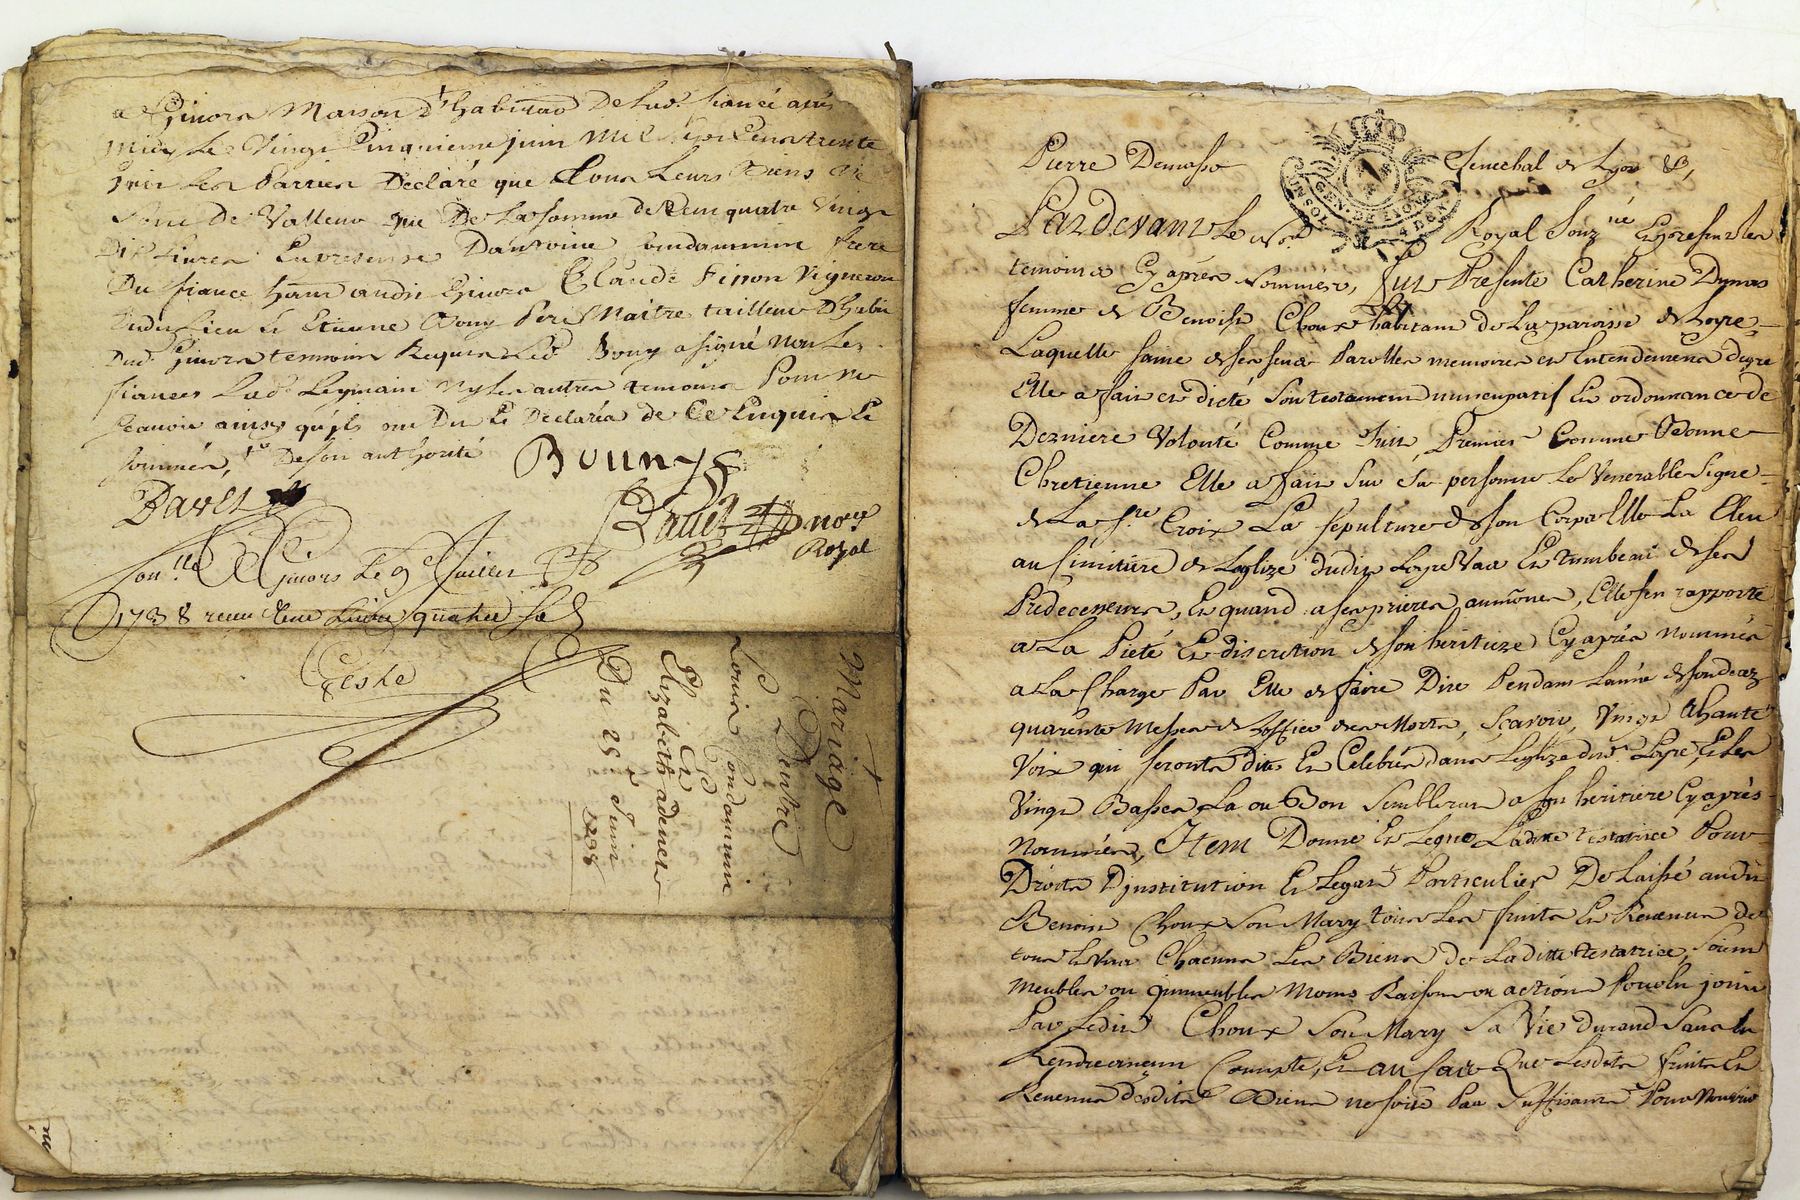 a Givors Maison d'habitaõ De lud. fiancé aprés
midy Le Vingt Cinquieme juin Mil sept Cens trente
huit Les Parties Declaré que tous Leurs Biens
sont De Valleur que De La somme de Cent quatre Vingt
Dix Livres En presence D'antoine Condammin frere
Du fiancé hant audit Givors Claude Finon Vigneron
dudit Lieu Et Etienne Bouny Pere Maitre tailleur D'habit
Dud. Givors temoins Requis Led. Bouny a signé non les
fiancés Lad. Leymain ny les autres temoins Pour ne
scavoir ainsy qu'jls ont Dit Et Declarés de Ce Enquis Et
sommés, De son authorité
Bouny
Davet
Davet no.re
Royal
Con.lle A Givors Le 9e Juillet
1738 receu
Geste
Mariage
Entre
Louis Condammin
Et
Elizabeth
Du 25e Juin
1738
Pierre Demasso Senechal de Lyon &,
GEN. DE LYON
Pardevant Le No.re Royal Souz.né En presence des
temoins Cy aprés Nommés, Fut Presente Catherine Dumas
femme de Benoist Choux habitant de La paroisse de Loyre
Laquelle saine de ses sens Parolles memoires et Entendement de gré
Elle a fait et dicté Son testament nuncupatif Et ordonnance de
Derniere Volonté Comme suit, Premier Comme Bonne
Chretienne Elle a fait Sur Sa personne Le Venerable Signe
de La s.te Croix La sepulture de son Corps Elle La Eleu
au simitiere de Leglize dudit Loyre Vaz Et tumbeau de ses
Predecesseurs, Et quand a ses prieres aumônes, Elle s'en rapporte
a La Pieté Et discretion de son heritiere Cy aprés nommés
a La Charge Par Elle de faire Dire Pendant L'année de son decez
quarente Messes de L'office des Morts, Scavoir, Vingt a haute
Voix qui seronts dits Et Celebrés dans Leglize dud. Loyre, Et Les
Vingt Basses La ou Bon Semblerat a son heritiere Cy aprés
Nommés, Item Donne Et Legue Ladite testatrice Pour
Droits D'institution Et Legat Particulier De Laissé audit
Benoist Choux Son Mary tous Les fruits Et Revenus de
tous Et Un Chacuns Les Biens de Laditte testatrice, Soient
meubles ou jmmeubles Noms Raisons ou actions Pour En jouir
Par Ledit Choux Son Mary Sa Vie durand Sans En
Rendre aucun Compte, Et au Cas Que Lesdits fruits Et
Revenus desdits Biens ne soit Pas Suffisants Pour Nourrir